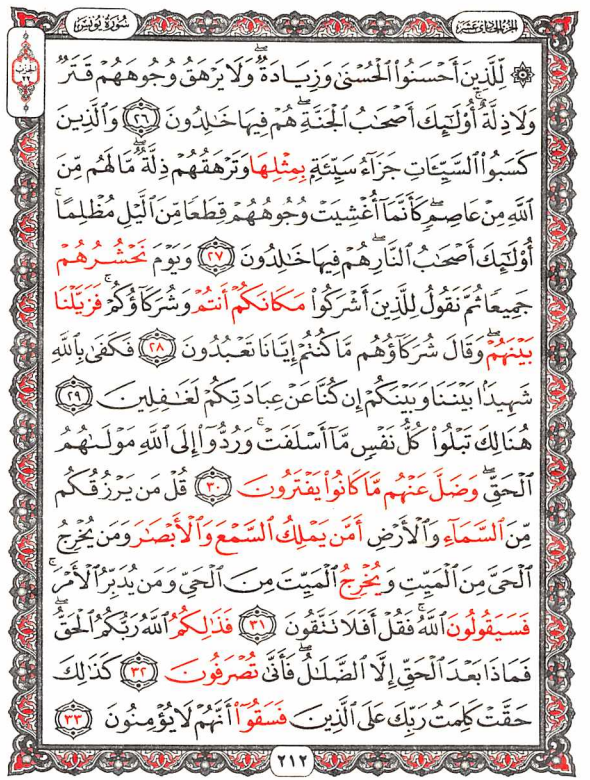 سُورَةُ يُونُسَ
الجزء الحادي عشر
الحزب ٢٢
۞ لِّلَّذِينَ أَحْسَنُوا۟ ٱلْحُسْنَىٰ وَزِيَادَةٌۖ وَلَا يَرْهَقُ وُجُوهَهُمْ قَتَرٌ
وَلَا ذِلَّةٌۚ أُو۟لَٰٓئِكَ أَصْحَٰبُ ٱلْجَنَّةِۖ هُمْ فِيهَا خَٰلِدُونَ ٢٦ وَٱلَّذِينَ
كَسَبُوا۟ ٱلسَّيِّـَٔاتِ جَزَآءُ سَيِّئَةٍۭ بِمِثْلِهَا وَتَرْهَقُهُمْ ذِلَّةٌۖ مَّا لَهُم مِّنَ
ٱللَّهِ مِنْ عَاصِمٍۖ كَأَنَّمَآ أُغْشِيَتْ وُجُوهُهُمْ قِطَعًا مِّنَ ٱلَّيْلِ مُظْلِمًاۚ
أُو۟لَٰٓئِكَ أَصْحَٰبُ ٱلنَّارِۖ هُمْ فِيهَا خَٰلِدُونَ ٢٧ وَيَوْمَ نَحْشُرُهُمْ
جَمِيعًا ثُمَّ نَقُولُ لِلَّذِينَ أَشْرَكُوا۟ مَكَانَكُمْ أَنتُمْ وَشُرَكَآؤُكُمْۚ فَزَيَّلْنَا
بَيْنَهُمْۖ وَقَالَ شُرَكَآؤُهُم مَّا كُنتُمْ إِيَّانَا تَعْبُدُونَ ٢٨ فَكَفَىٰ بِٱللَّهِ
شَهِيدًۢا بَيْنَنَا وَبَيْنَكُمْ إِن كُنَّا عَنْ عِبَادَتِكُمْ لَغَٰفِلِينَ ٢٩
هُنَالِكَ تَبْلُوا۟ كُلُّ نَفْسٍ مَّآ أَسْلَفَتْۚ وَرُدُّوٓا۟ إِلَى ٱللَّهِ مَوْلَىٰهُمُ
ٱلْحَقِّۖ وَضَلَّ عَنْهُم مَّا كَانُوا۟ يَفْتَرُونَ ٣٠ قُلْ مَن يَرْزُقُكُم
مِّنَ ٱلسَّمَآءِ وَٱلْأَرْضِ أَمَّن يَمْلِكُ ٱلسَّمْعَ وَٱلْأَبْصَٰرَ وَمَن يُخْرِجُ
ٱلْحَيَّ مِنَ ٱلْمَيِّتِ وَيُخْرِجُ ٱلْمَيِّتَ مِنَ ٱلْحَيِّ وَمَن يُدَبِّرُ ٱلْأَمْرَۚ
فَسَيَقُولُونَ ٱللَّهُۚ فَقُلْ أَفَلَا تَتَّقُونَ ٣١ فَذَٰلِكُمُ ٱللَّهُ رَبُّكُمُ ٱلْحَقُّۖ
فَمَاذَا بَعْدَ ٱلْحَقِّ إِلَّا ٱلضَّلَٰلُۖ فَأَنَّىٰ تُصْرَفُونَ ٣٢ كَذَٰلِكَ
حَقَّتْ كَلِمَتُ رَبِّكَ عَلَى ٱلَّذِينَ فَسَقُوٓا۟ أَنَّهُمْ لَا يُؤْمِنُونَ ٣٣
٢١٢